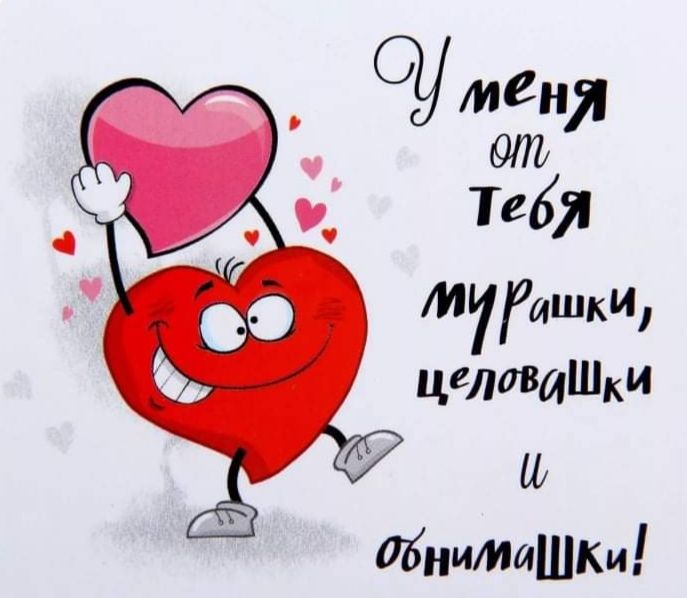 У меня
от
Тебя
мурашки,
целовашки
и
обнимашки!